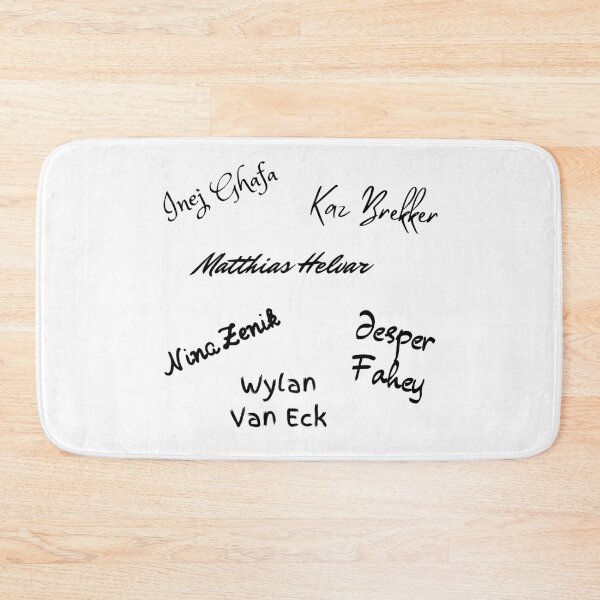 Inej Ghafa
Kaz Brekker
Matthias Helvar
Nina Zenik
Jesper
Fahey
Wylan
Van Eck